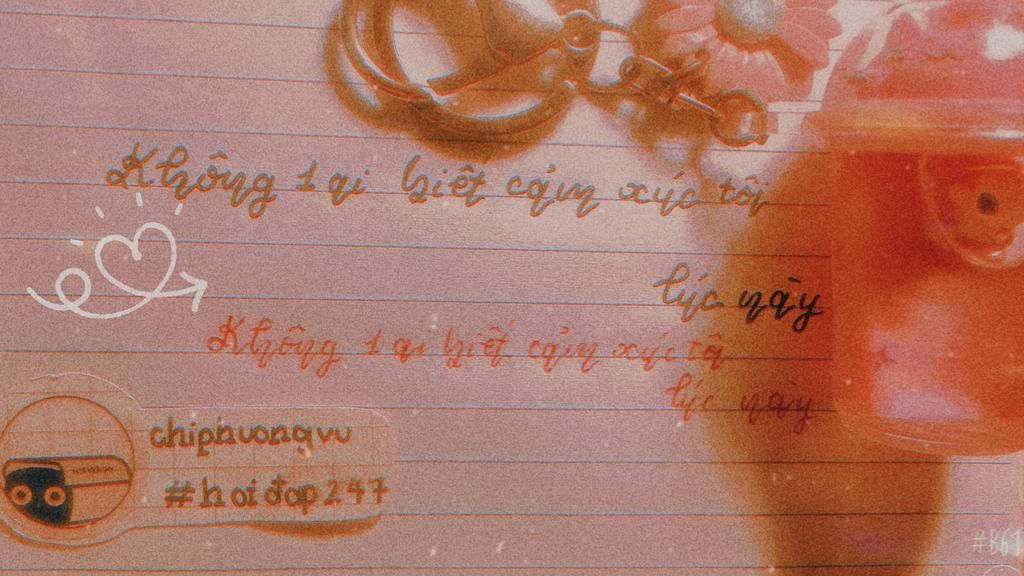 Không 1 ai biết cảm xúc tôi
lúc này
Không 1 ai biết cảm xúc tôi
lúc này
chiphuongvu
#hoidap247